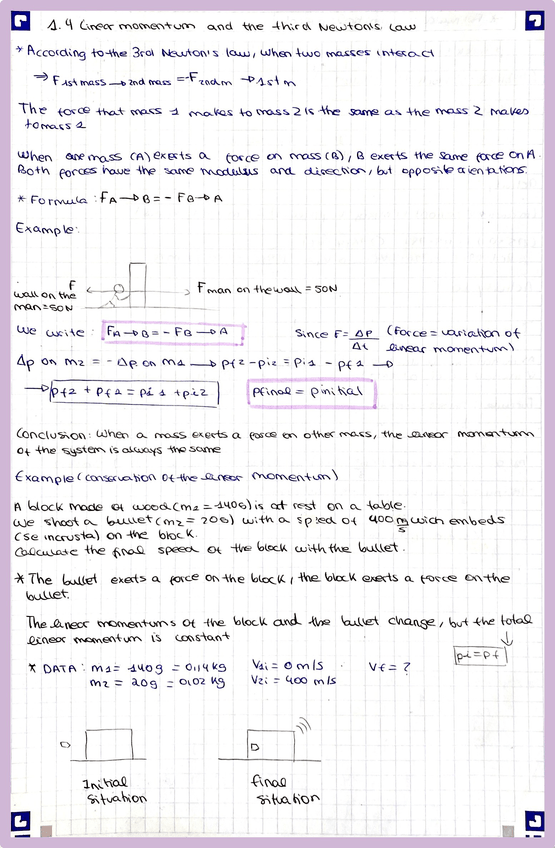 1.4 Linear momentum and the third Newton's Law
* According to the 3rd Newton's law, when two masses interact
→ F 1st mass → 2nd mass = -F 2nd m → 1st m
The force that mass 1 makes to mass 2 is the same as the mass 2 makes
to mass 1
When one mass (A) exerts a force on mass (B), B exerts the same force on A.
Both forces have the same modulus and direction, but opposite orientations.
* Formula: F A → B = - F B → A
Example:
F wall on the man = 50N
F man on the wall = 50N
We write: F A → B = - F B → A
Since F = Δp/Δt (Force = variation of
linear momentum)
Δp on m2 = - Δp on m1 → pf2 - pi2 = pi1 - pf1 →
→ pf2 + pf1 = pi1 + pi2
pfinal = pinitial
Conclusion: When a mass exerts a force on other mass, the linear momentum
of the system is always the same
Example (conservation of the linear momentum)
A block made of wood (m1 = 140g) is at rest on a table.
We shoot a bullet (m2 = 20g) with a spied of 400 m/s wich embeds
(se incrusta) on the block.
Calculate the final speed of the block with the bullet.
* The bullet exerts a force on the block, the block exerts a force on the
bullet.
The linear momentums of the block and the bullet change, but the total
linear momentum is constant
↓
pi = pf
* DATA: m1 = 140g = 0,14 kg V1i = 0 m/s Vf = ?
m2 = 20g = 0,02 kg V2i = 400 m/s
Initial
situation
final
situation